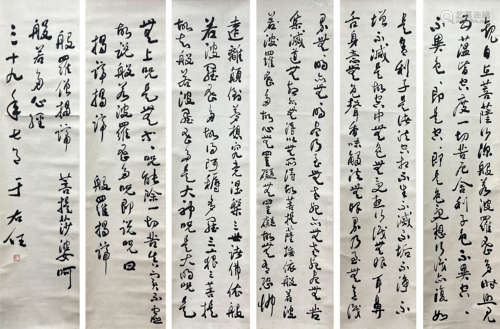 觀自在菩薩行深般若波羅蜜多時照見
五蘊皆空度一切苦厄舍利子色不異空空
不異色色即是空空即是色受想行識亦復如
是舍利子是諸法空相不生不滅不垢不淨不
增不減是故空中無色無受想行識無眼耳鼻
舌身意無色聲香味觸法無眼界乃至無意識
界無無明亦無無明盡乃至無老死亦無老死盡無苦
集滅道無智亦無得以無所得故菩提薩埵依般若波
羅蜜多故心無罣礙無罣礙故無有恐怖
遠離顛倒夢想究竟涅槃三世諸佛依般
若波羅蜜多故得阿耨多羅三藐三菩提
故知般若波羅蜜多是大神咒是大明咒是
無上咒是無等等咒能除一切苦真實不虛
故說般若波羅蜜多咒即說咒曰
揭諦揭諦 般羅揭諦
般羅僧揭諦 菩提莎婆呵
般若多心經
三十九年七月 于右任